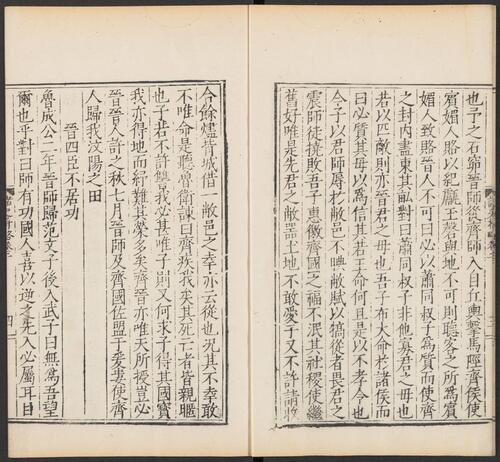 也予之石窌晉師從齊師入自丘輿擊馬陘齊侯使
賓媚人賂以紀甗玉磬與地不可則聽客之所爲賓
媚人致賂晉人不可曰必以蕭同叔子爲質而使齊
之封内盡東其畝對曰蕭同叔子非他寡君之母也
若以匹敵則亦晉君之母也吾子布大命於諸侯而
曰必質其母以爲信其若王命何且是以不孝令也
今子以君師辱於敝邑不腆敝賦以犒從者畏君之
震師徒撓敗吾子惠徼齊國之福不泯其社稷使繼
舊好唯是先君之敝器土地不敢愛子又不許請收
合餘燼背城借一敝邑之幸亦云從也況其不幸敢
不唯命是聽魯衛諫曰齊疾我矣其死亡者皆親暱
也子若不許讐我必甚唯子則又何求子得其國寶
我亦得地而紓難其榮多矣齊晉亦唯天所授豈必
晉晉人許之秋七月晉師及齊國佐盟于爰婁使齊
人歸我汶陽之田
晉四臣不居功
魯成公二年晉師歸范文子後入武子曰無爲吾望
爾也乎對曰師有功國人喜以逆之先入必屬耳目